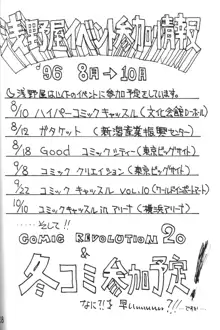 浅野屋イベント参加情報
'96 8月→10月
浅野屋は以下のイベントに参加予定としています。
8/10 ハイパーコミックキャッスル(文化会館
8/12 ガタケット(新潟産業振興センター)
8/18 Good コミックシティー(東京ビッグサイト)
9/8 コミック クリエイション(東京ビッグサイト)
9/22 コミック キャッスル VOL.10
10/10 コミックキャッスル in アリーナ(横浜アリーナ)
……そして!!
COMIC REVOLUTION 20
&
冬コミ参加予定!
なに?!を 早い